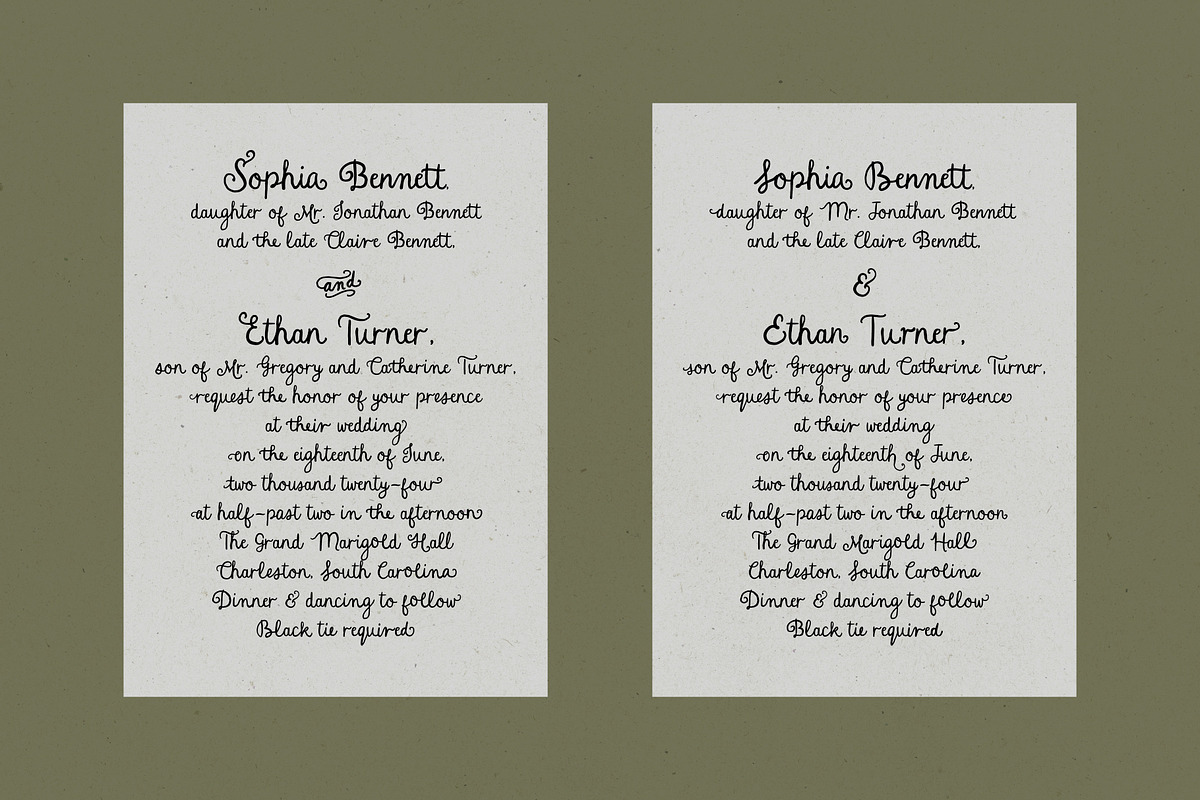 Sophia Bennett,
daughter of Mr. Jonathan Bennett
and the late Claire Bennett,
and
Ethan Turner,
son of Mr. Gregory and Catherine Turner,
request the honor of your presence
at their wedding
on the eighteenth of June,
two thousand twenty-four
at half-past two in the afternoon
The Grand Marigold Hall
Charleston, South Carolina
Dinner & dancing to follow
Black tie required
Sophia Bennett,
daughter of Mr. Jonathan Bennett
and the late Claire Bennett,
&
Ethan Turner,
son of Mr. Gregory and Catherine Turner,
request the honor of your presence
at their wedding
on the eighteenth of June,
two thousand twenty-four
at half-past two in the afternoon
The Grand Marigold Hall
Charleston, South Carolina
Dinner & dancing to follow
Black tie required